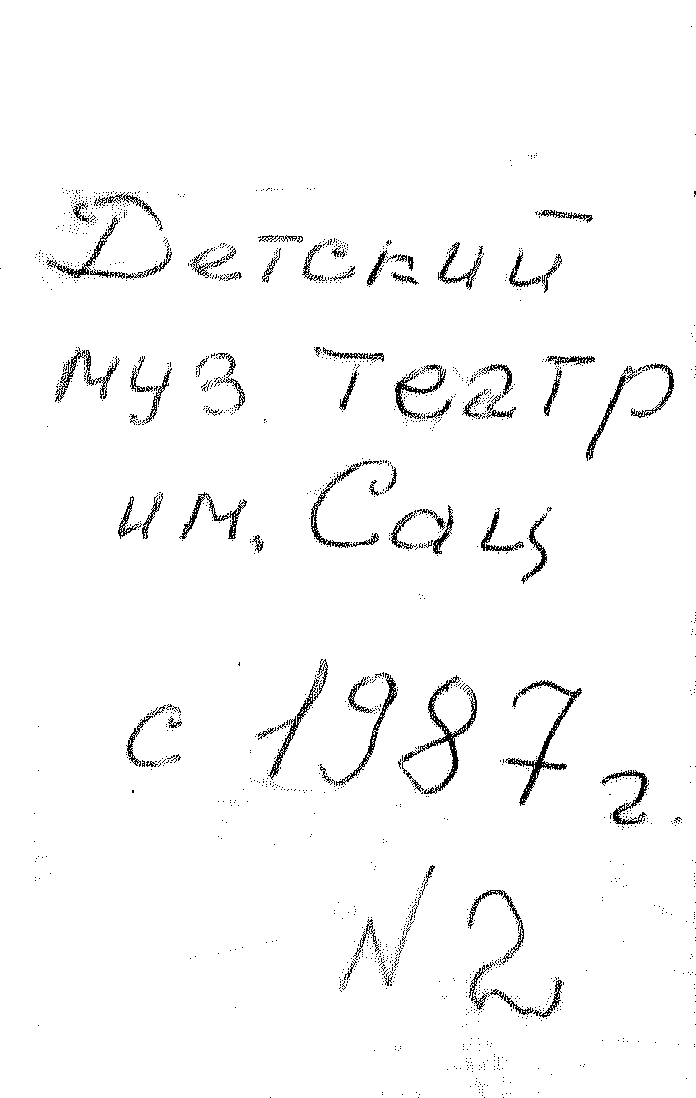 Детский
муз. театр
им. Сац
с 1987 г.
N 2